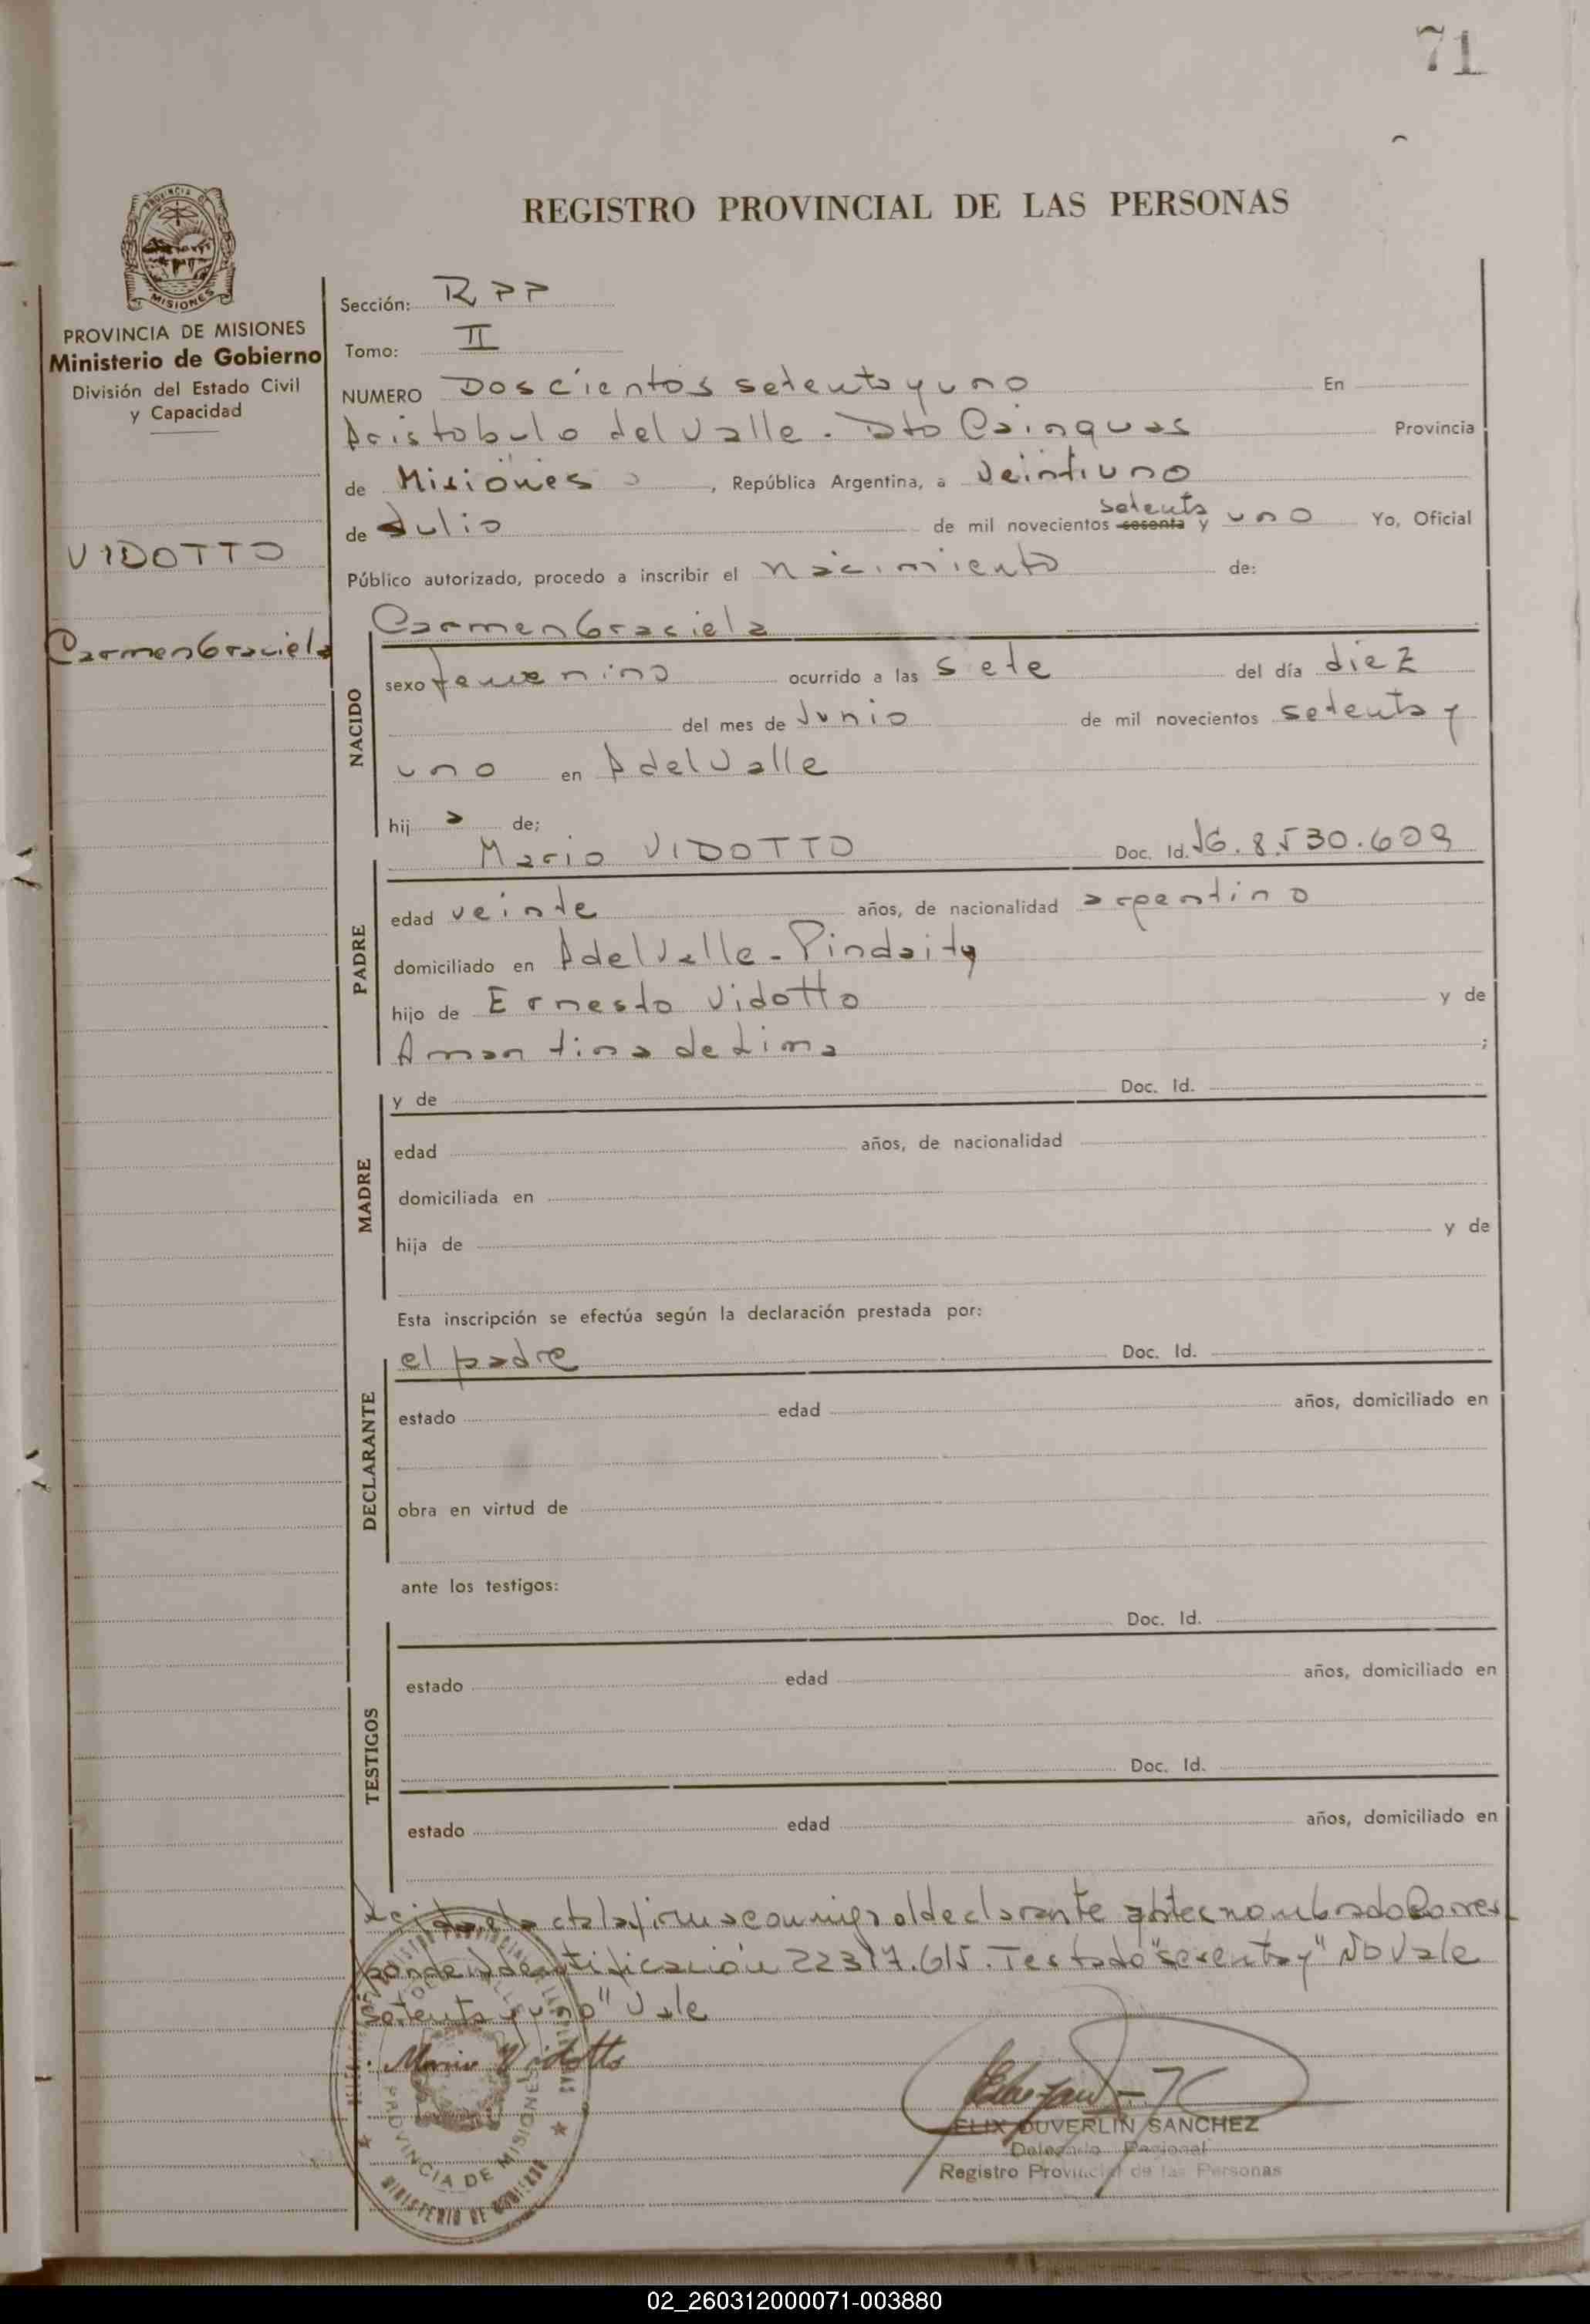 71
REGISTRO PROVINCIAL DE LAS PERSONAS
PROVINCIA
MISIONES
PROVINCIA DE MISIONES
Ministerio de Gobierno
División del Estado Civil
y Capacidad
VIDOTTO
Carmen Graciela
Sección: R P P
Tomo: II
NUMERO Doscientos setenta y uno En
Aristobulo del Valle. Dto Cainguas Provincia
de Misiones, República Argentina, a Veintiuno
setenta
de Julio de mil novecientos sesenta y uno Yo, Oficial
Público autorizado, procedo a inscribir el nacimiento de:
Carmen Graciela
NACIDO
sexo femenino ocurrido a las siete del día diez
del mes de Junio de mil novecientos setenta y
uno en A del Valle
hij a de;
PADRE
Mario VIDOTTO Doc. Id. 8.530.609
edad veinte años, de nacionalidad argentino
domiciliado en A del Valle - Pindaity
hijo de Ernesto Vidotto y de
Amantina de Lima ;
MADRE
y de Doc. Id.
edad años, de nacionalidad
domiciliada en
hija de y de
Esta inscripción se efectúa según la declaración prestada por:
DECLARANTE
el padre Doc. Id.
estado edad años, domiciliado en
obra en virtud de
ante los testigos:
TESTIGOS
Doc. Id.
estado edad años, domiciliado en
Doc. Id.
estado edad años, domiciliado en
Leida el acta la firma conmigo el declarante antes nombrado Corres
ponde Identificación 22317.615. Testado "sesenta y" No Vale
Setenta y uno" Vale
Mario Vidotto
PROVINCIA DE MISIONES
MINISTERIO DE GOBIERNO
ELIX DUVERLIN SANCHEZ
Delegado Regional
Registro Provincial de las Personas
02_260312000071-003880